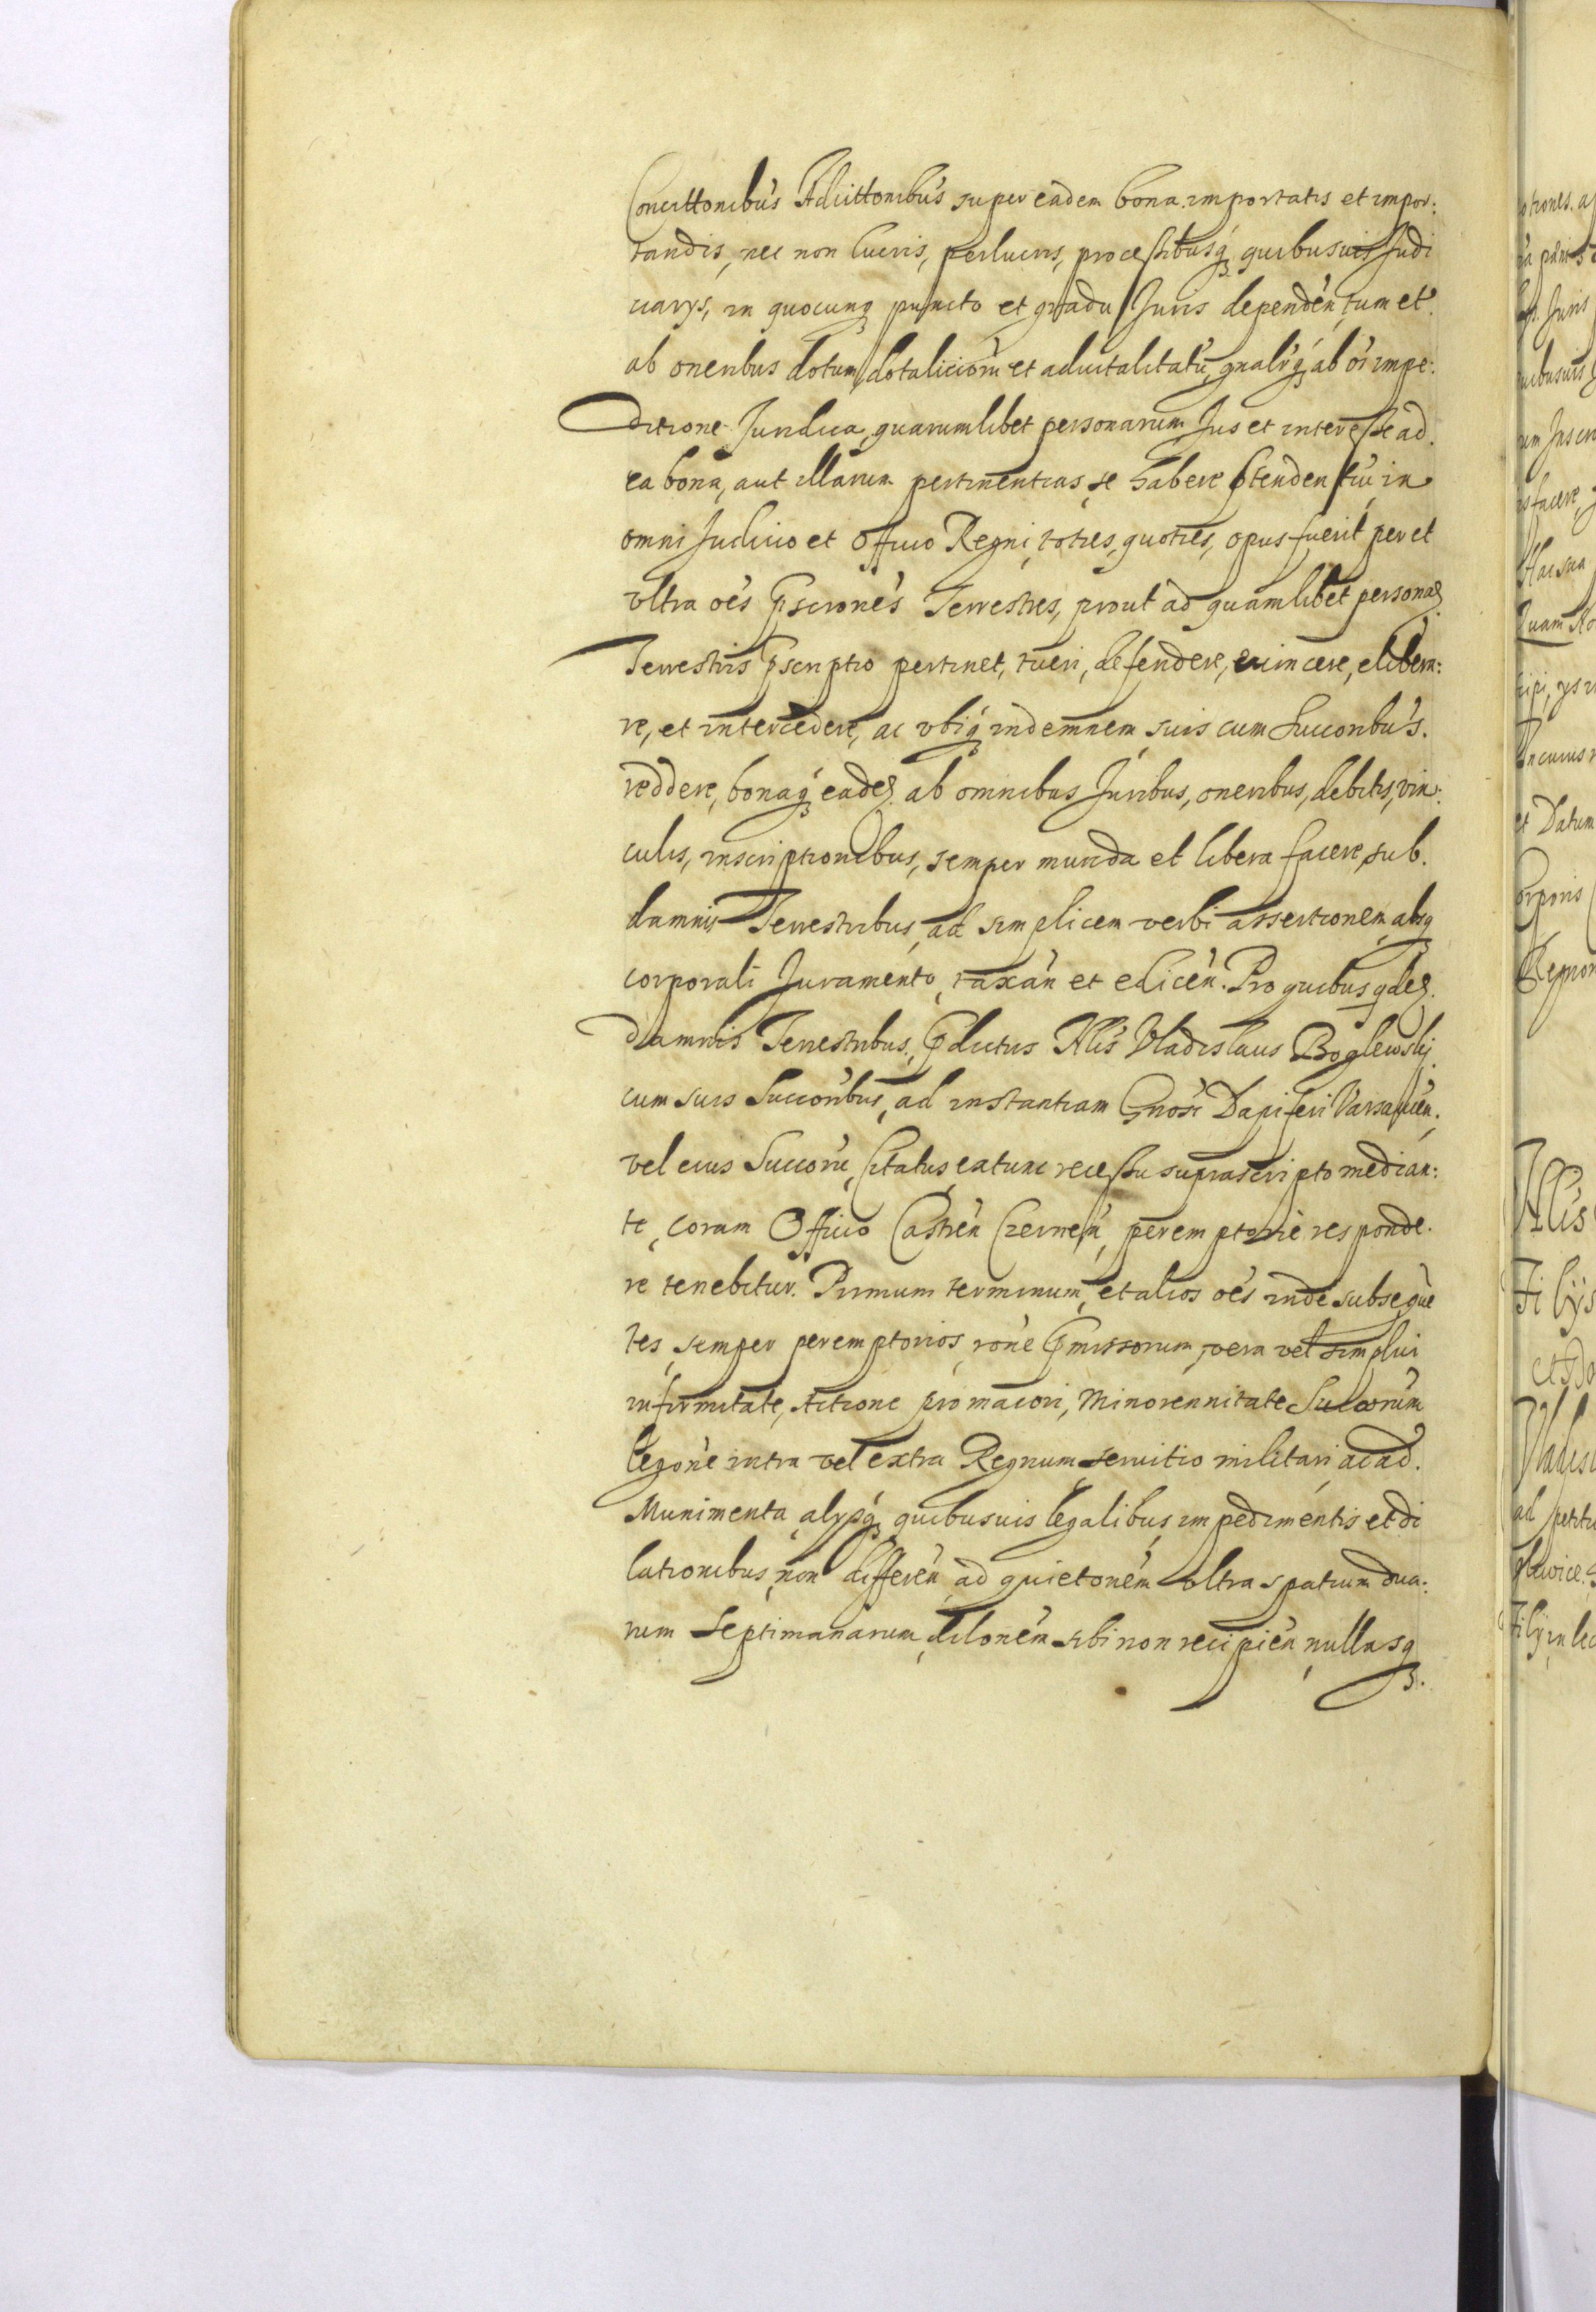 Concittonibus Adcittonibus super eadem bona importatis et impor:
tandis, nec non lucris, perlucris, processibusq quibusuis Judi
ciarys, in quocunq puncto et gradu Juris dependen, tum et
ab oneribus dotum dotalicioru et aduitalitatu, gnalrq ab oi impe:
ditione Juridica, quarumlibet personarum Jus et interesse ad
ea bona, aut illarum pertinentias, se habere ptendentiu, in
omni Judicio et Officio Regni, toties, quoties, opus fuerit per et
vltra oes pscriones Terrestres, prout ad quamlibet persona
Terrestris pscriptio pertinet, tueri, defendere, euincere, elibera:
re, et intercedere, ac vbiq indemnem, suis cum Succoribus.
reddere, bonaq eade ab omnibus Juribus, oneribus, debitis, vin:
culis, inscriptionibus, semper munda et libera facere, sub.
damnis Terrestribus, ad simplicem verbi assertionem, absq
corporali Juramento, taxan et elicen. Pro quibus qde
damnis Terrestribus, pdictus Mlis Vladislaus Boglewskj
cum suis Succoribus, ad instantiam Gnosi Dapiferi Varsauien,
vel eius Succoru, Citatus, extunc recessu suprascripto median:
te, coram Officio Castren Czernen, peremptorie responde.
re tenebitur. Primum terminum, et alios oes inde subseque
tes, semper peremptorios, rone pmissorum, vera vel simplici
infirmitate, Actione pro maiori, Minorennitate Succorum
legone intra vel extra Regnum, seruitio militari, ac ad.
Munimenta, alysq quibusuis legalibus, impedimentis et di
lationibus, non differen, ad quietonem vltra spatium dua:
rum Septimanarum, dilonem sibi non recipien, nullasq